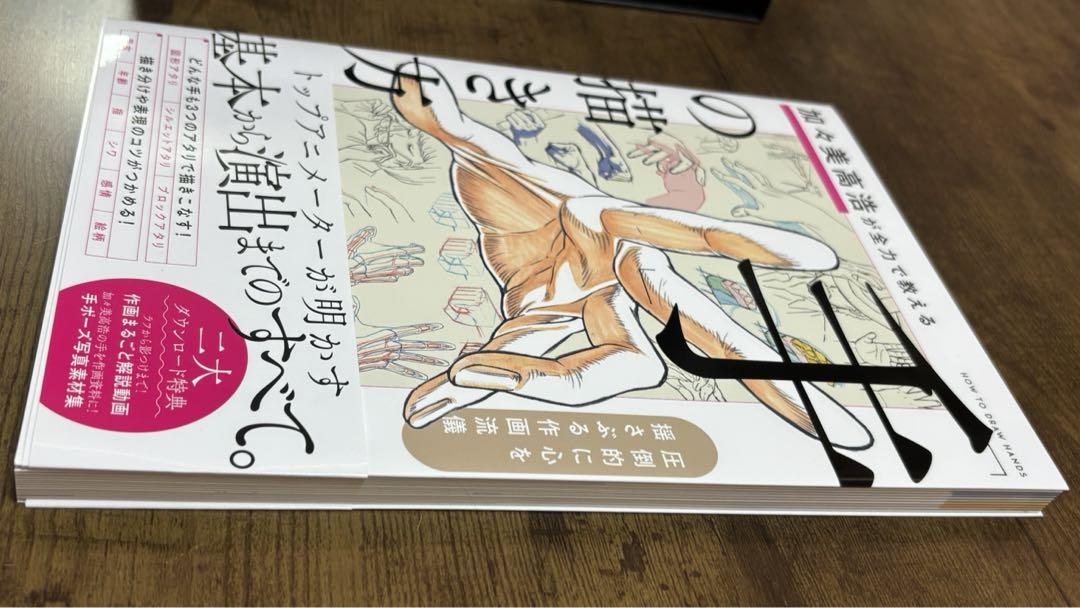 加々美高浩が全力で教える
「手」
の描き方
HOW TO DRAW HANDS
圧倒的に心を
揺さぶる作画流儀
トップアニメーターが明かす
基本から演出までのすべて。
どんな手も3つのアタリで描きこなす！
図形アタリ
シルエットアタリ
ブロックアタリ
描き分けや表現のコツがつかめる！
年齢
指
シワ
感情
絵柄
二大
ダウンロード特典
ラフから影つけまで！
作画まるごと解説動画
加々美高浩の手を作画資料に！
手ポーズ写真素材集